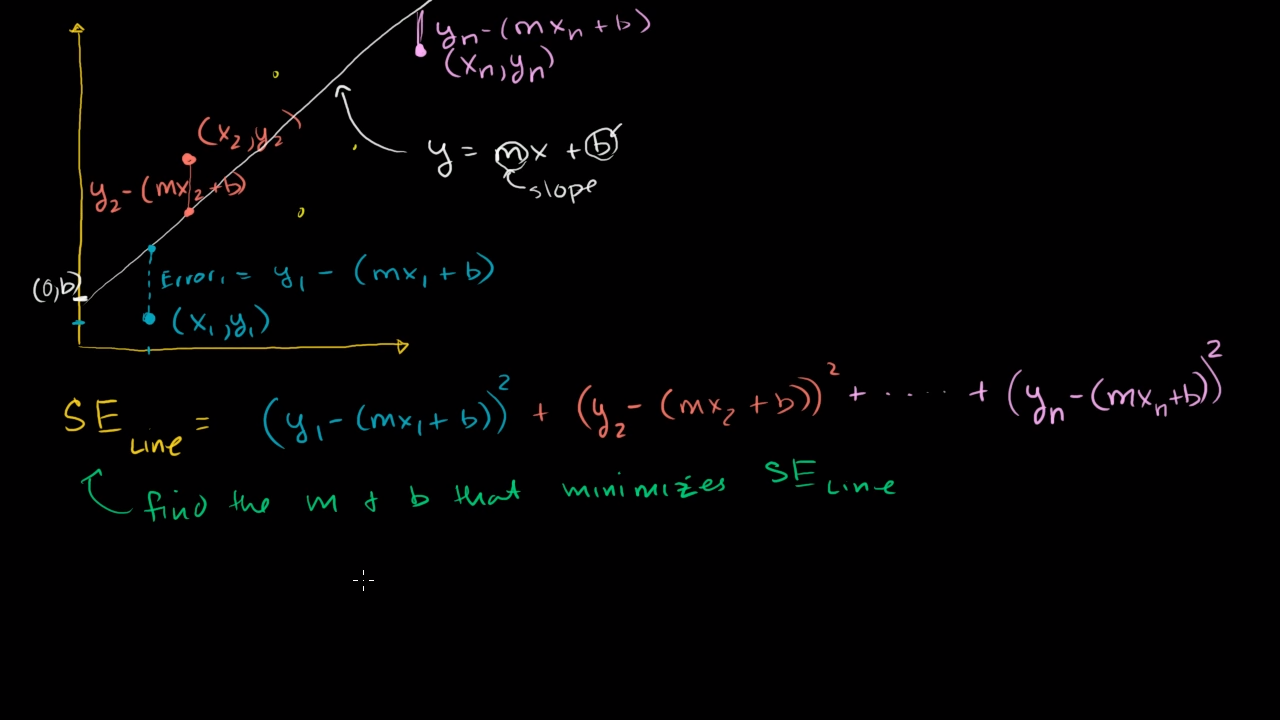 yₙ-(mxₙ+b)
(xₙ,yₙ)
(x₂,y₂)
y = mx + b
slope
y₂-(mx₂+b)
(0,b)
Error₁ = y₁ - (mx₁+b)
(x₁,y₁)
SE Line = (y₁-(mx₁+b))² + (y₂-(mx₂+b))² + ..... + (yₙ-(mxₙ+b))²
find the m & b that minimizes SE Line